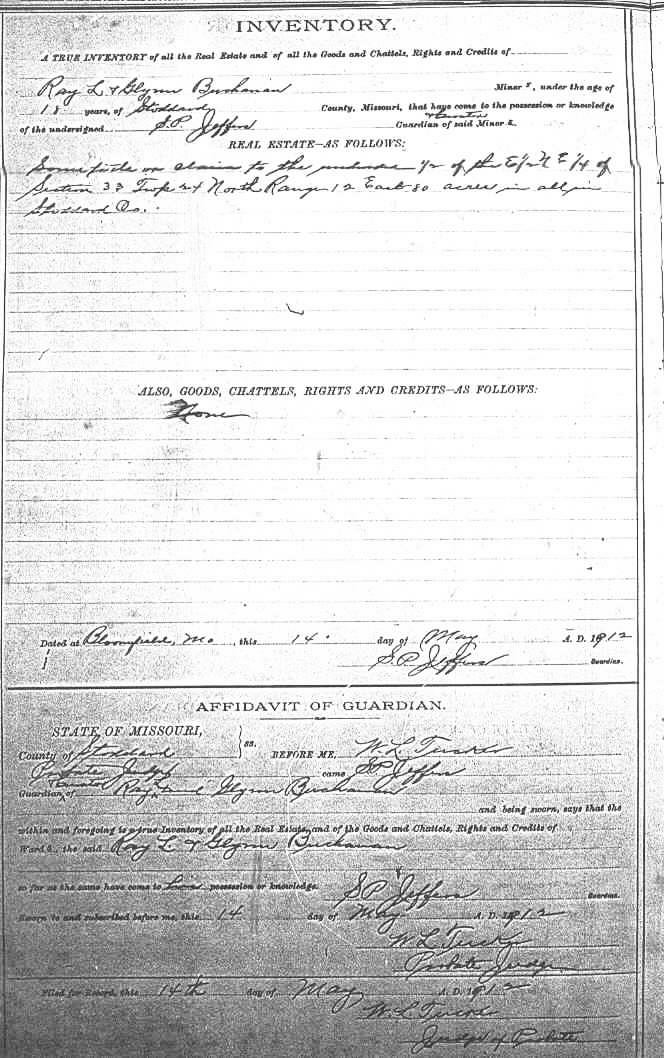 INVENTORY.
A TRUE INVENTORY of all the Real Estate and of all the Goods and Chattels, Rights and Credits of
Ray L & Glynn Buchanan Minor s, under the age of
18 years, of Stoddard County, Missouri, that have come to the possession or knowledge
Curator
of the undersigned S.P. Jeffers Guardian of said Minor s.
REAL ESTATE—AS FOLLOWS:
Some title or claim to the 1/2 of the E 1/2 N E 1/4 of
Section 33 Twp 24 North Range 12 East 80 acres in all in
Stoddard Co.
ALSO, GOODS, CHATTELS, RIGHTS AND CREDITS—AS FOLLOWS:
None
Dated at Bloomfield, Mo, this 14 day of May A. D. 1912
S.P. Jeffers Guardian.
AFFIDAVIT OF GUARDIAN.
STATE OF MISSOURI,
County of Stoddard ss. BEFORE ME, W. L. Tucker
Probate Judge came S P Jeffers
Curator
Guardian of Ray and Glynn Buchanan
and being sworn, says that the
within and foregoing is a true Inventory of all the Real Estate, and of the Goods and Chattels, Rights and Credits of
Ward s, the said Ray L. & Glynn Buchanan
so far as the same have come to possession or knowledge. S P Jeffers Guardian.
Sworn to and subscribed before me, this 14 day of May A. D. 1912
W. L. Tucker
Probate Judge
Filed for Record, this 14th day of May A. D. 1912
W. L. Tucker
Judge of Probate